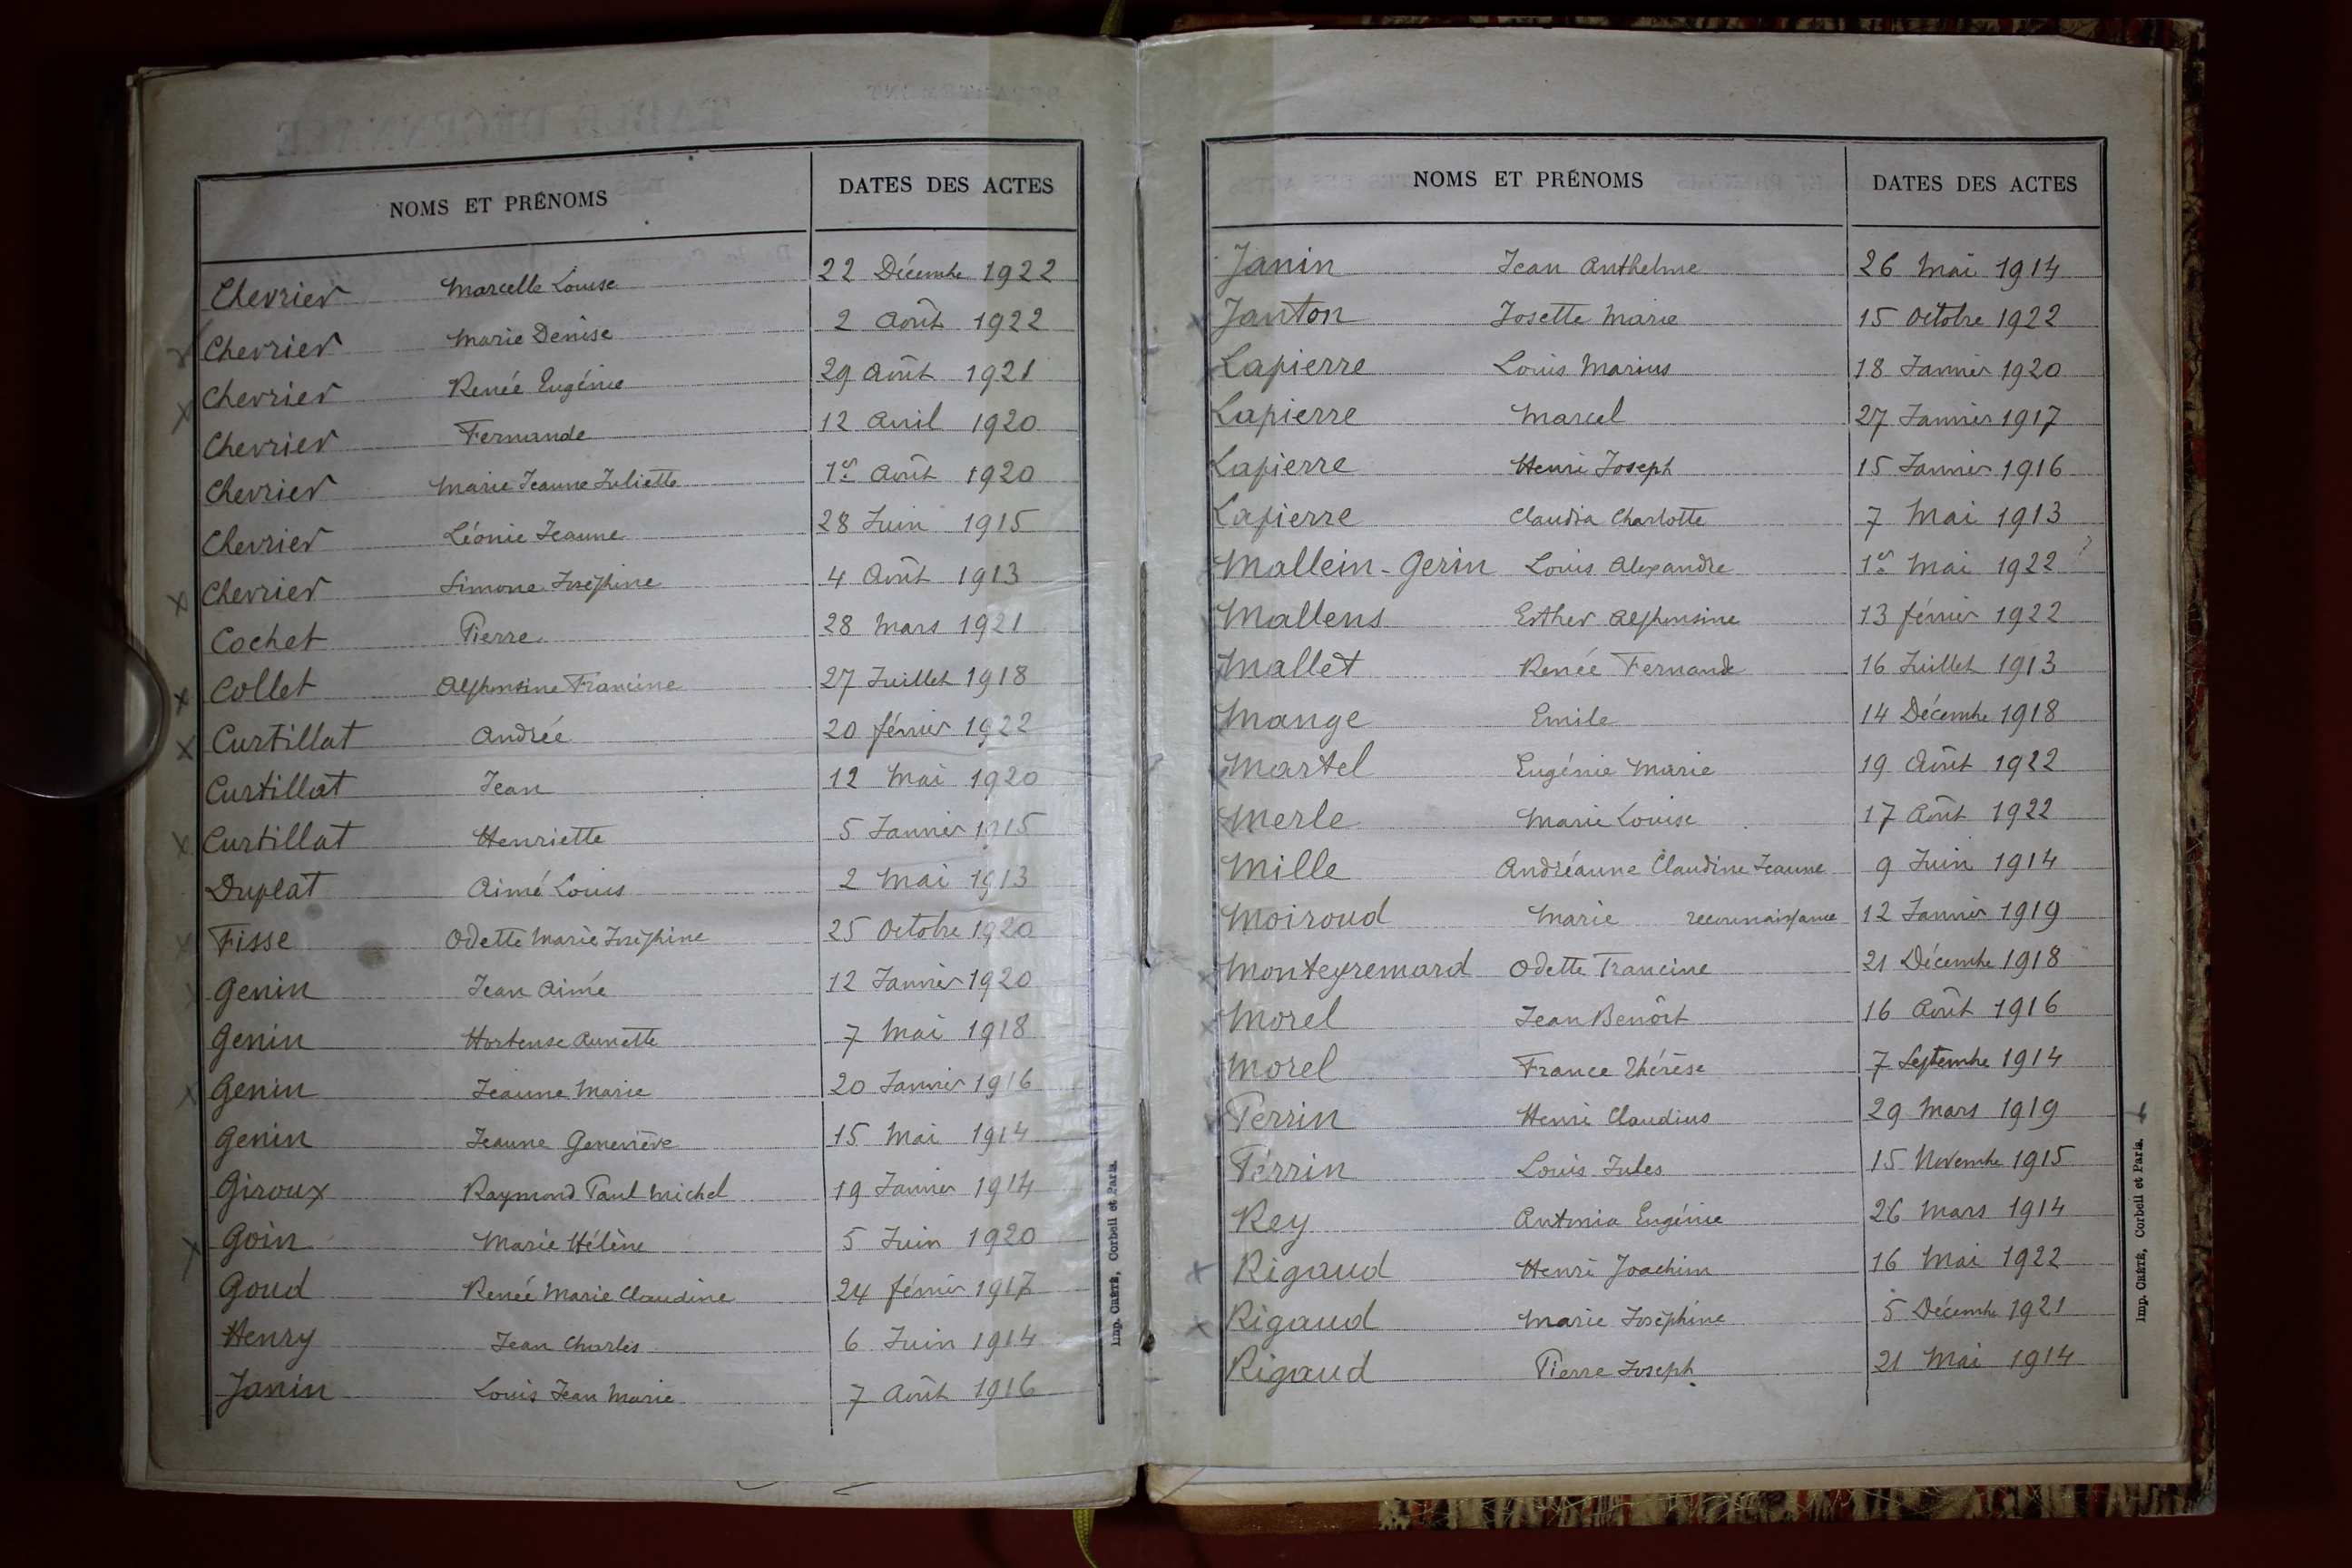 NOMS ET PRÉNOMS DATES DES ACTES
Chevrier Marcelle Louise 22 Décembre 1922
Chevrier Marie Denise 2 Août 1922
Chevrier Renée Eugénie 29 Août 1921
Chevrier Fernande 12 Avril 1920
Chevrier Marie Jeanne Juliette 1er Août 1920
Chevrier Léonie Jeanne 28 Juin 1915
Chevrier Simone Joséphine 4 Août 1913
Cochet Pierre 28 Mars 1921
Collet Alphonsine Francine 27 Juillet 1918
Curtillat Andrée 20 février 1922
Curtillat Jean 12 Mai 1920
Curtillat Henriette 5 Janvier 1915
Duplat Aimé Louis 2 Mai 1913
Fisse Odette Marie Joséphine 25 Octobre 1920
Genin Jean Aimé 12 Janvier 1920
Genin Hortense Annette 7 Mai 1918
Genin Jeanne Marie 20 Janvier 1916
Genin Jeanne Geneviève 15 Mai 1914
Giroux Raymond Paul Michel 19 Janvier 1914
Goin Marie Hélène 5 Juin 1920
Goud Renée Marie Claudine 24 février 1917
Henry Jean Charles 6 Juin 1914
Janin Louis Jean Marie 7 Août 1916
Imp. CRÉTÉ, Corbeil et Paris.
NOMS ET PRÉNOMS DATES DES ACTES
Janin Jean Anthelme 26 Mai 1914
Janton Josette Marie 15 Octobre 1922
Lapierre Louis Marius 18 Janvier 1920
Lapierre Marcel 27 Janvier 1917
Lapierre Henri Joseph 15 Janvier 1916
Lapierre Claudia Charlotte 7 Mai 1913
Mallein-Gerin Louis Alexandre 1er Mai 1922 ?
Mallens Esther Alphonsine 13 février 1922
Mallet Renée Fernande 16 Juillet 1913
Mange Emile 14 Décembre 1918
Martel Eugénie Marie 19 Août 1922
Merle Marie Louise 17 Août 1922
Mille Andréanne Claudine Jeanne 9 Juin 1914
Moiroud Marie reconnaissance 12 Janvier 1919
Monteyremard Odette Francine 21 Décembre 1918
Morel Jean Benoît 16 Août 1916
Morel France Thérèse 7 Septembre 1914
Perrin Henri Claudius 29 Mars 1919
Perrin Louis Jules 15 Novembre 1915
Rey Antonia Eugénie 26 Mars 1914
Rigaud Henri Joachim 16 Mai 1922
Rigaud Marie Joséphine 5 Décembre 1921
Rigaud Pierre Joseph 21 Mai 1914
Imp. CRÉTÉ, Corbeil et Paris.